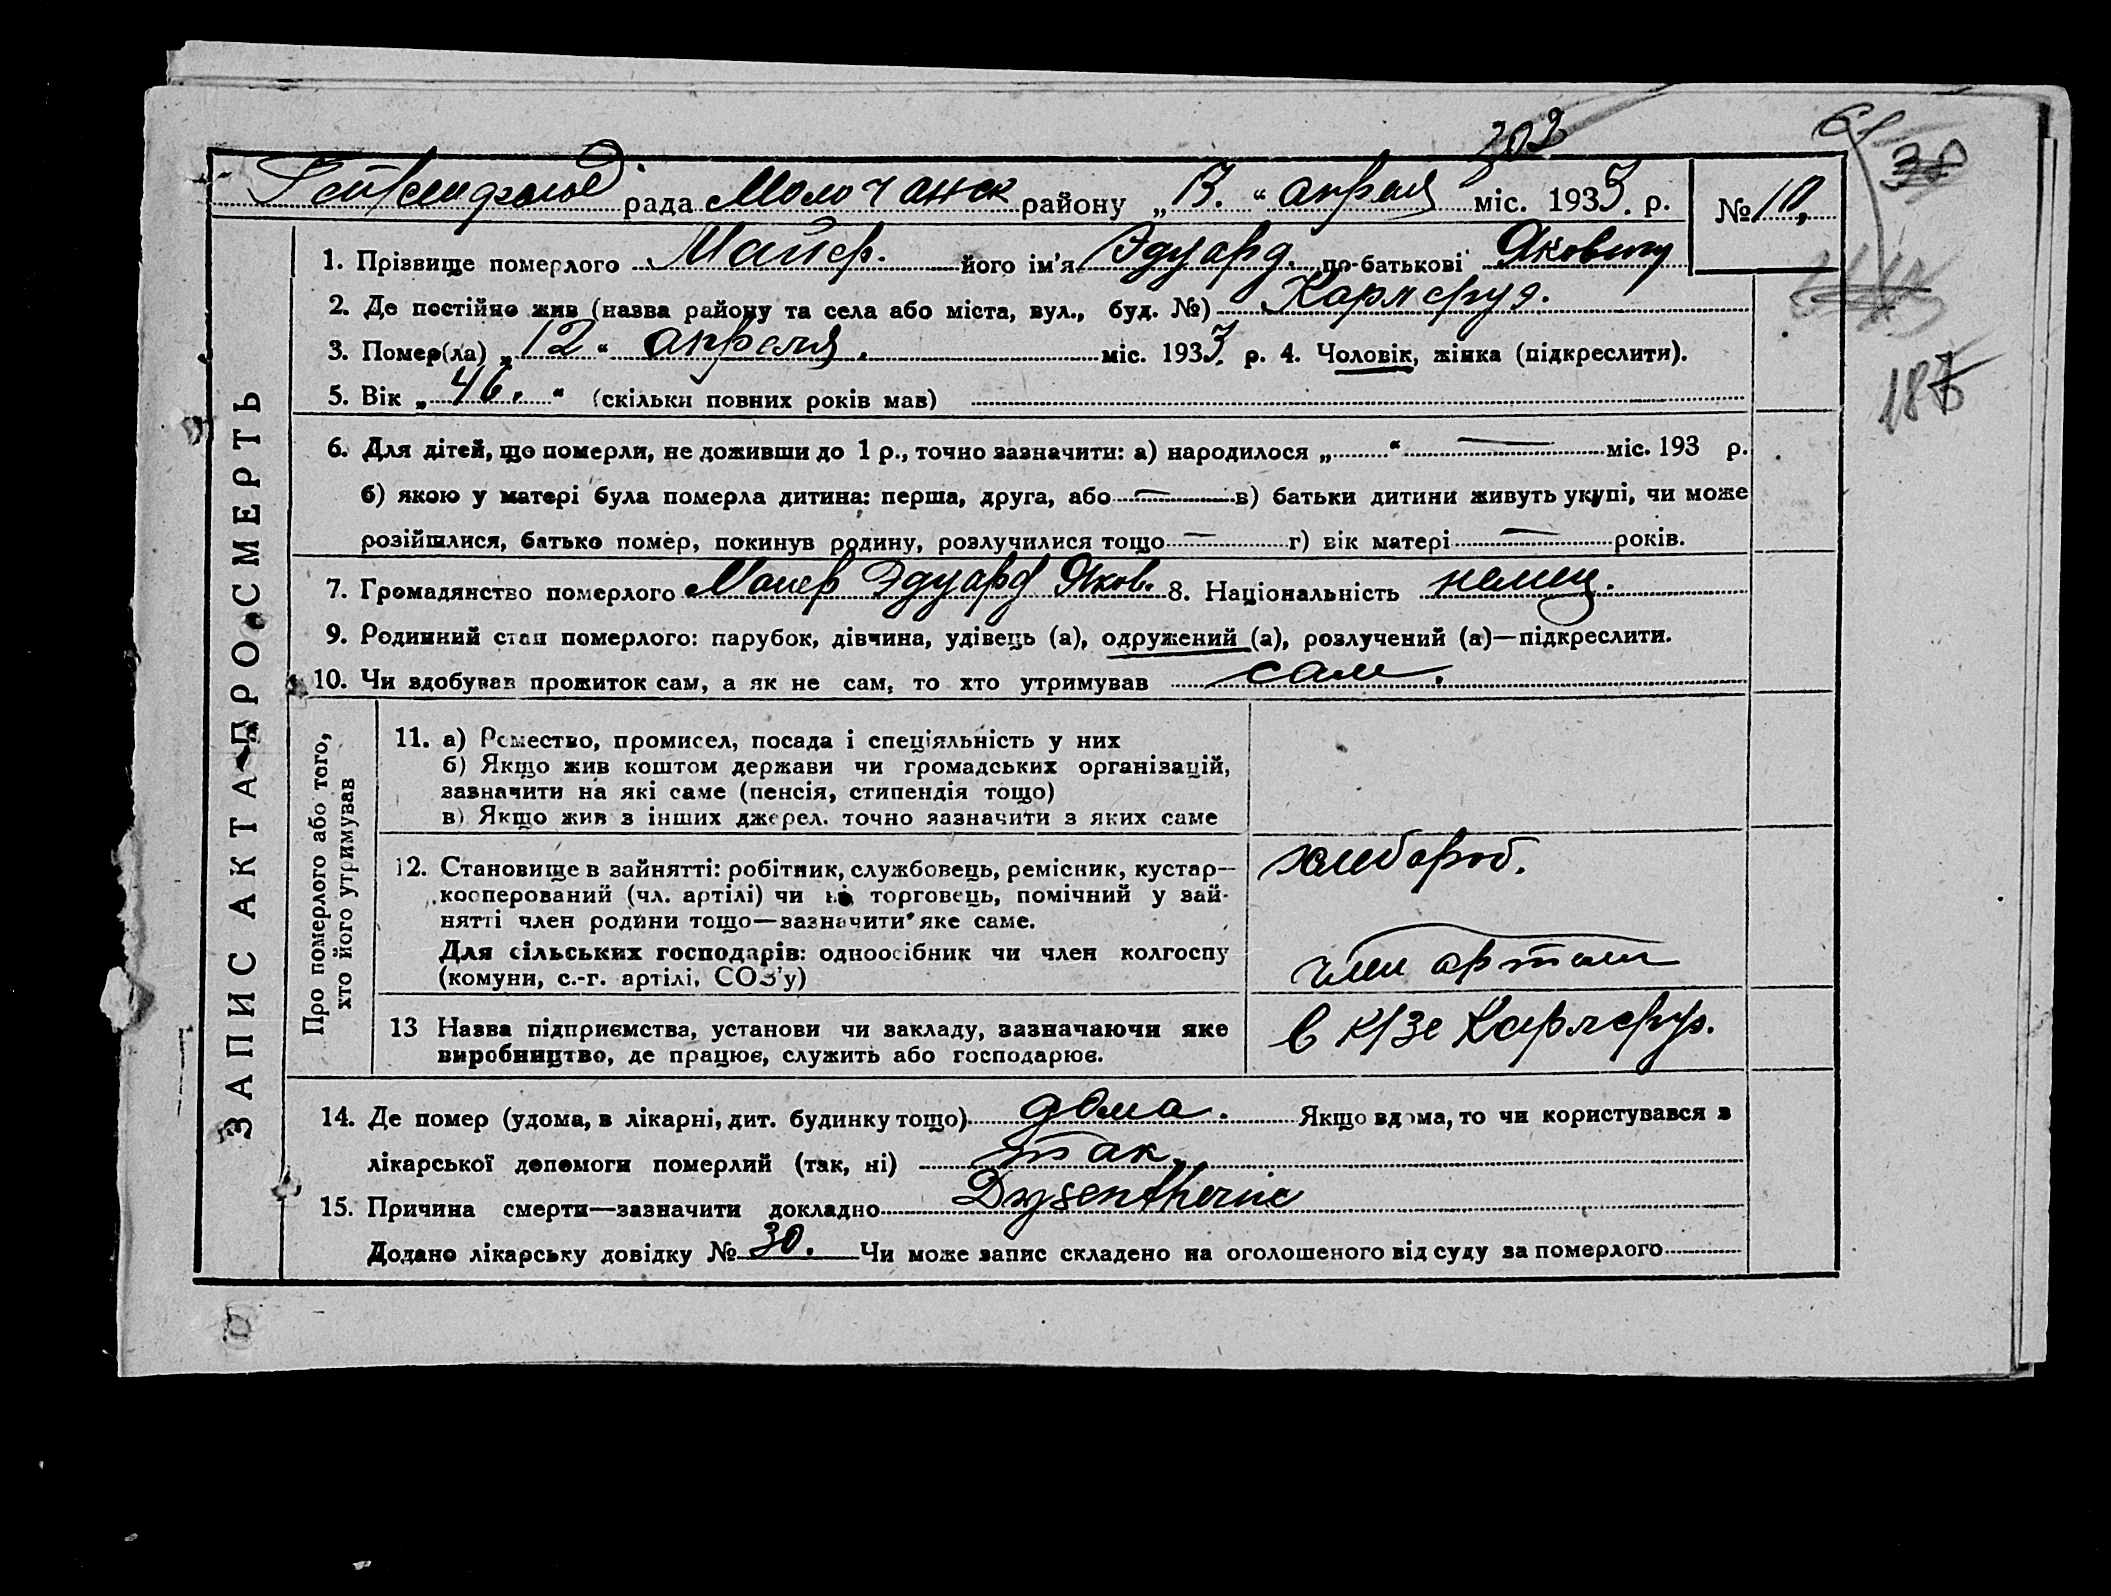 202
рада Молочанск району „13.“ апреля міс. 1933. р. № 10,
1. Прізвище померлого Майер. його ім'я Эдуард. по-батькові Яковлев
2. Де постійно жив (назва району та села або міста, вул., буд. №) Карлсруэ.
187
3. Помер(ла) „12“ апреля. міс. 1933. р. 4. Чоловік, жінка (підкреслити).
5. Вік „46.“ (скільки повних років мав)
6. Для дітей, що померли, не доживши до 1 р., точно зазначити: а) народилося „ “ — міс. 193 р.
б) якою у матері була померла дитина: перша, друга, або — в) батьки дитини живуть укупі, чи може
розійшлися, батько помер, покинув родину, розлучилися тощо — г) вік матері — років.
7. Громадянство померлого Майер Эдуард Яков. 8. Національність немец.
9. Родинний стан померлого: парубок, дівчина, удівець (а), одружений (а), розлучений (а)—підкреслити.
10. Чи здобував прожиток сам, а як не сам, то хто утримував сам.
ЗАПИС АКТА ПРО СМЕРТЬ
Про померлого або того,
хто його утримував
11. а) Ремество, промисел, посада і спеціяльність у них
б) Якщо жив коштом держави чи громадських організацій,
зазначити на які саме (пенсія, стипендія тощо)
в) Якщо жив з інших джерел. точно зазначити з яких саме
12. Становище в зайнятті: робітник, службовець, ремісник, кустар—
кооперований (чл. артілі) чи ні, торговець, помічний у зай-
нятті член родини тощо—зазначити яке саме.
хлебороб.
Для сільських господарів: одноосібник чи член колгоспу
(комуни, с.-г. артілі, СОЗ'у)
член артели
13 Назва підприємства, установи чи закладу, зазначаючи яке
виробництво, де працює, служить або господарює.
в к/зе Карлсруэ.
14. Де помер (удома, в лікарні, дит. будинку тощо) дома. Якщо вдома, то чи користувався з
лікарської допомоги померлий (так, ні) так
15. Причина смерти—зазначити докладно Dysentherie
Додано лікарську довідку № 30. Чи може запис складено на оголошеного від суду за померлого